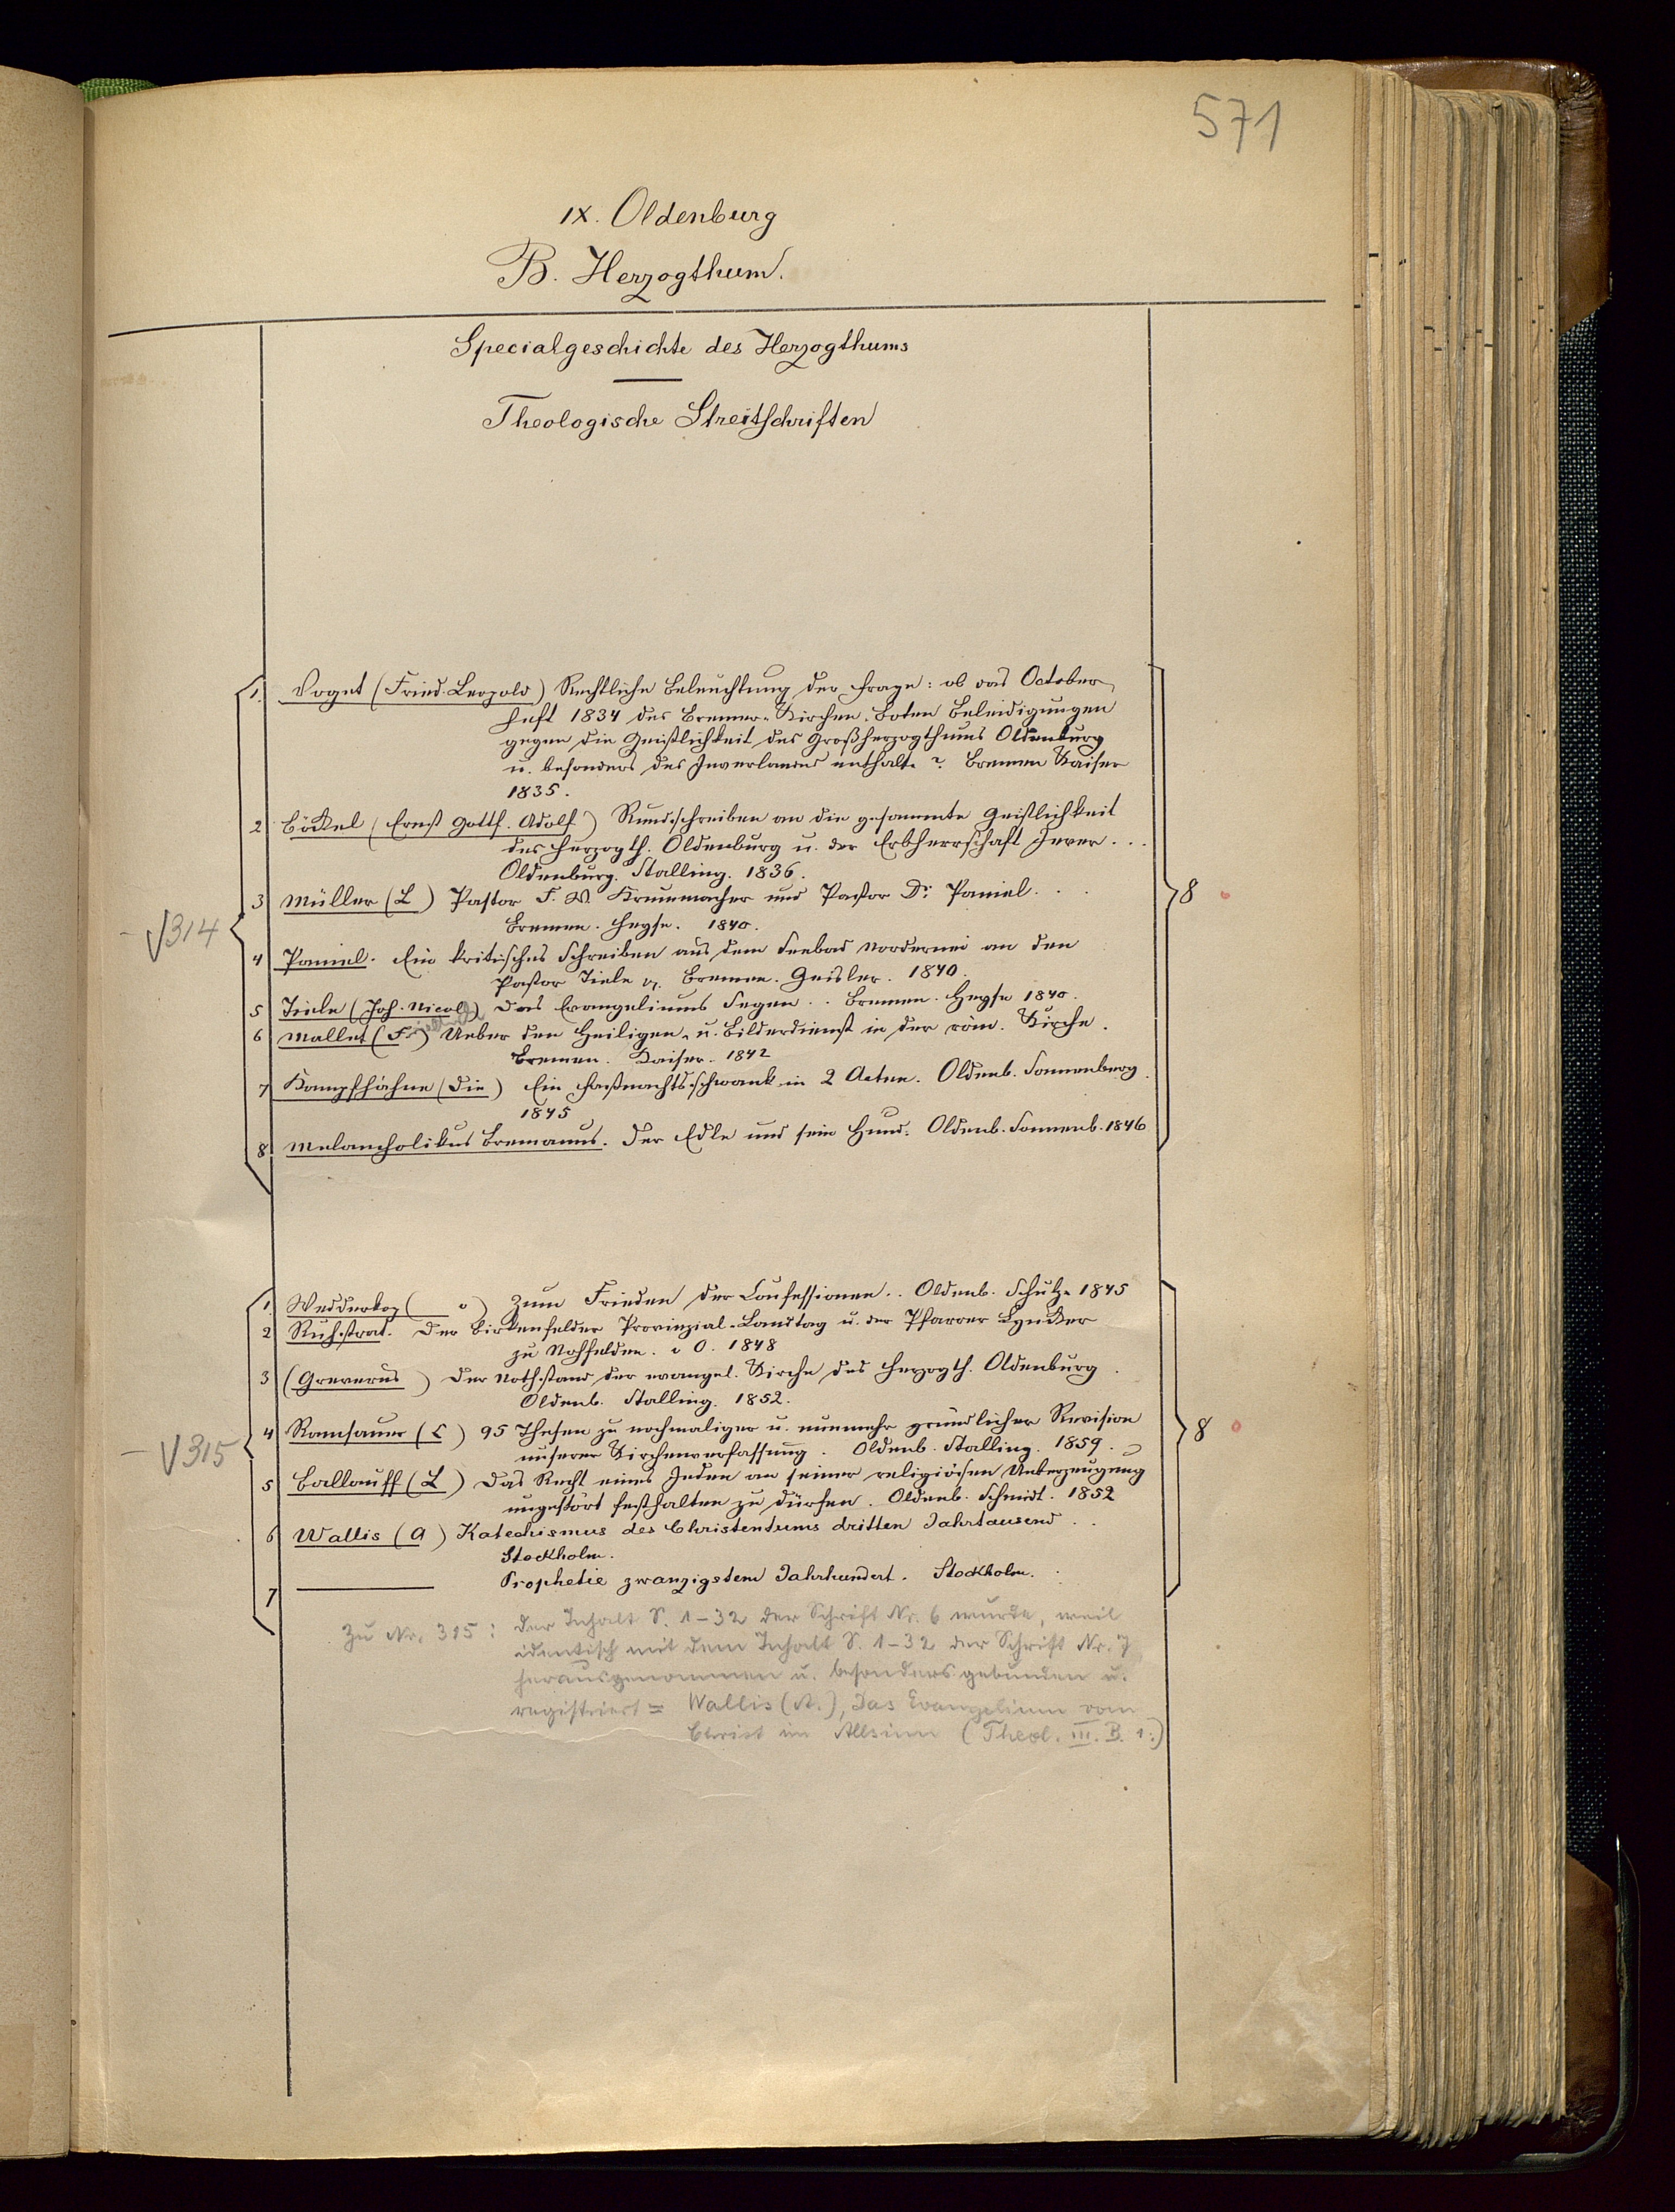 571
IX. Oldenburg
B. Herzogthum.
Specialgeschichte des Herzogthums
Theologische Streitschriften
1. Voget (Fried. Leopold) Rechtliche Beleuchtung der Frage: ob das October
Heft 1834 des Bremer-Kirchen-Boten Beleidigungen
gegen die Geistlichkeit des Großherzogthums Oldenburg
u. besonders des Jeverlandes enthalte? Bremen Kaiser
1835.
2 Böckel (Ernst Gottf. Adolf) Rundschreiben an die gesammte Geistlichkeit
des Herzogth. Oldenburg u. der Erbherrschaft Jever...
Oldenburg. Stalling. 1836.
3 Müller (L) Pastor F. W. Krummacher und Pastor Dr. Paniel...
Bremen. Heyse. 1840.
8
√314
4 Paniel. Ein kritisches Schreiben aus dem Seebad Nordernei an den
Pastor Tiele in Bremen. Geisler. 1840.
5 Tiele (Joh. Nicol) Das Evangeliums Segen.. Bremen. Heyse 1840.
6 Mallet (Friedrich) Ueber den Heiligen- u. Bilderdienst in der röm. Kirche.
Bremen. Kaiser. 1842
7 Kampfhähne (Die) Ein Faßnachtsschwank in 2 Acten. Oldenb. Sonnenberg.
1845
8 Melancholikus Bremanus. Der Edle und sein Hund. Oldenb. Sonnenb. 1846
1. Wedderkop ( v) Zum Frieden der Confessionen.. Oldenb. Schulze 1845
2 Ruhstrat. Der Birkenfelder Provinzial-Landtag u. der Pfarrer Lyncker
zu Nohfelden. i O. 1848
3 (Greverus) Der Nothstand der evangel. Kirche des Herzogth. Oldenburg.
Oldenb. Stalling. 1852.
4 Ramsauer (C) 95 Thesen zu nochmaliger u. nunmehr gründlicher Revision
unserer Kirchenverfassung. Oldenb. Stalling. 1859.
8
√315
5 Ballauff (L) Das Recht eines Jeden an seiner religiösen Ueberzeugung
ungestört festhalten zu dürfen. Oldenb. Schmidt. 1852
6 Wallis (A) Katechismus des Christentums dritten Jahrtausend..
Stockholm.
7 Prophetie zwanzigstem Jahrhundert. Stockholm.
Zu Nr. 315: Der Inhalt S. 1-32 der Schrift Nr. 6 wurde, weil
identisch mit dem Inhalt S. 1-32 der Schrift Nr. 7
herausgenommen u. besonders gebunden u.
registriert = Wallis (A.), Das Evangelium vom
Christ im Allsinn (Theol. III. B. 1.)